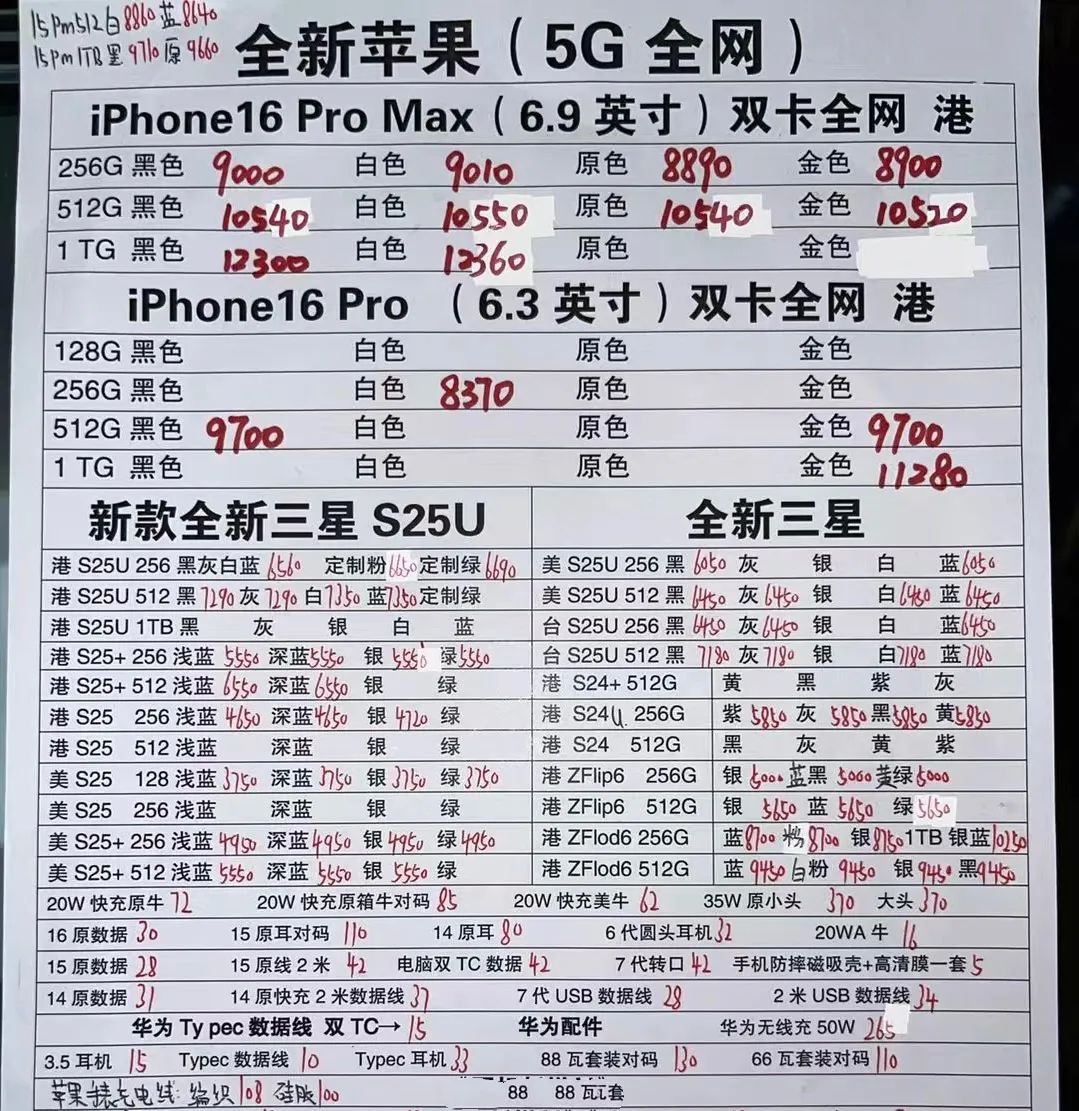 15Pm512白8860蓝8640
15Pm1TB黑9710原9660
全新苹果（5G 全网）
iPhone16 Pro Max（6.9 英寸）双卡全网 港
256G 黑色 9000 白色 9010 原色 8890 金色 8900
512G 黑色 10540 白色 10550 原色 10540 金色 10520
1 TG 黑色 12300 白色 12360 原色 金色
iPhone16 Pro （6.3 英寸）双卡全网 港
128G 黑色 白色 原色 金色
256G 黑色 白色 8370 原色 金色
512G 黑色 9700 白色 原色 金色 9700
1 TG 黑色 白色 原色 金色 11280
新款全新三星 S25U
港 S25U 256 黑灰白蓝 6560 定制粉 6650 定制绿 6690
港 S25U 512 黑 7290 灰 7290 白 7350 蓝 7350 定制绿
港 S25U 1TB 黑 灰 银 白 蓝
港 S25+ 256 浅蓝 5550 深蓝 5550 银 5550 绿 5550
港 S25+ 512 浅蓝 6550 深蓝 6550 银 绿
港 S25 256 浅蓝 4650 深蓝 4650 银 4720 绿
港 S25 512 浅蓝 深蓝 银 绿
美 S25 128 浅蓝 3750 深蓝 3750 银 3750 绿 3750
美 S25 256 浅蓝 深蓝 银 绿
美 S25+ 256 浅蓝 4950 深蓝 4950 银 4950 绿 4950
美 S25+ 512 浅蓝 5550 深蓝 5550 银 5550 绿
全新三星
美 S25U 256 黑 6050 灰 银 白 蓝 6050
美 S25U 512 黑 6450 灰 6450 银 白 6480 蓝 6450
台 S25U 256 黑 6450 灰 6450 银 白 蓝 6450
台 S25U 512 黑 7180 灰 7180 银 白 7180 蓝 7180
港 S24+ 512G 黄 黑 紫 灰
港 S24U 256G 紫 5850 灰 5850 黑 5850 黄 5850
港 S24 512G 黑 灰 黄 紫
港 ZFlip6 256G 银 5000 蓝黑 5000 黄绿 5000
港 ZFlip6 512G 银 5650 蓝 5650 绿 5650
港 ZFlod6 256G 蓝 8700 粉 8700 银 8750 1TB 银蓝 10250
港 ZFlod6 512G 蓝 9450 白粉 9450 银 9450 黑 9450
20W 快充原牛 72 20W 快充原箱牛对码 85 20W 快充美牛 62 35W 原小头 370 大头 370
16 原数据 30 15 原耳对码 110 14 原耳 80 6 代圆头耳机 32 20WA 牛 16
15 原数据 28 15 原线 2 米 42 电脑双 TC 数据 42 7 代转口 42 手机防摔磁吸壳+高清膜一套 5
14 原数据 31 14 原快充 2 米数据线 37 7 代 USB 数据线 28 2 米 USB 数据线 34
华为 Ty pec 数据线 双 TC→ 15 华为配件 华为无线充 50W 265
3.5 耳机 15 Typec 数据线 10 Typec 耳机 33 88 瓦套装对码 130 66 瓦套装对码 110
苹果手表充电线: 编织 108 硅胶 100 88 88 瓦套